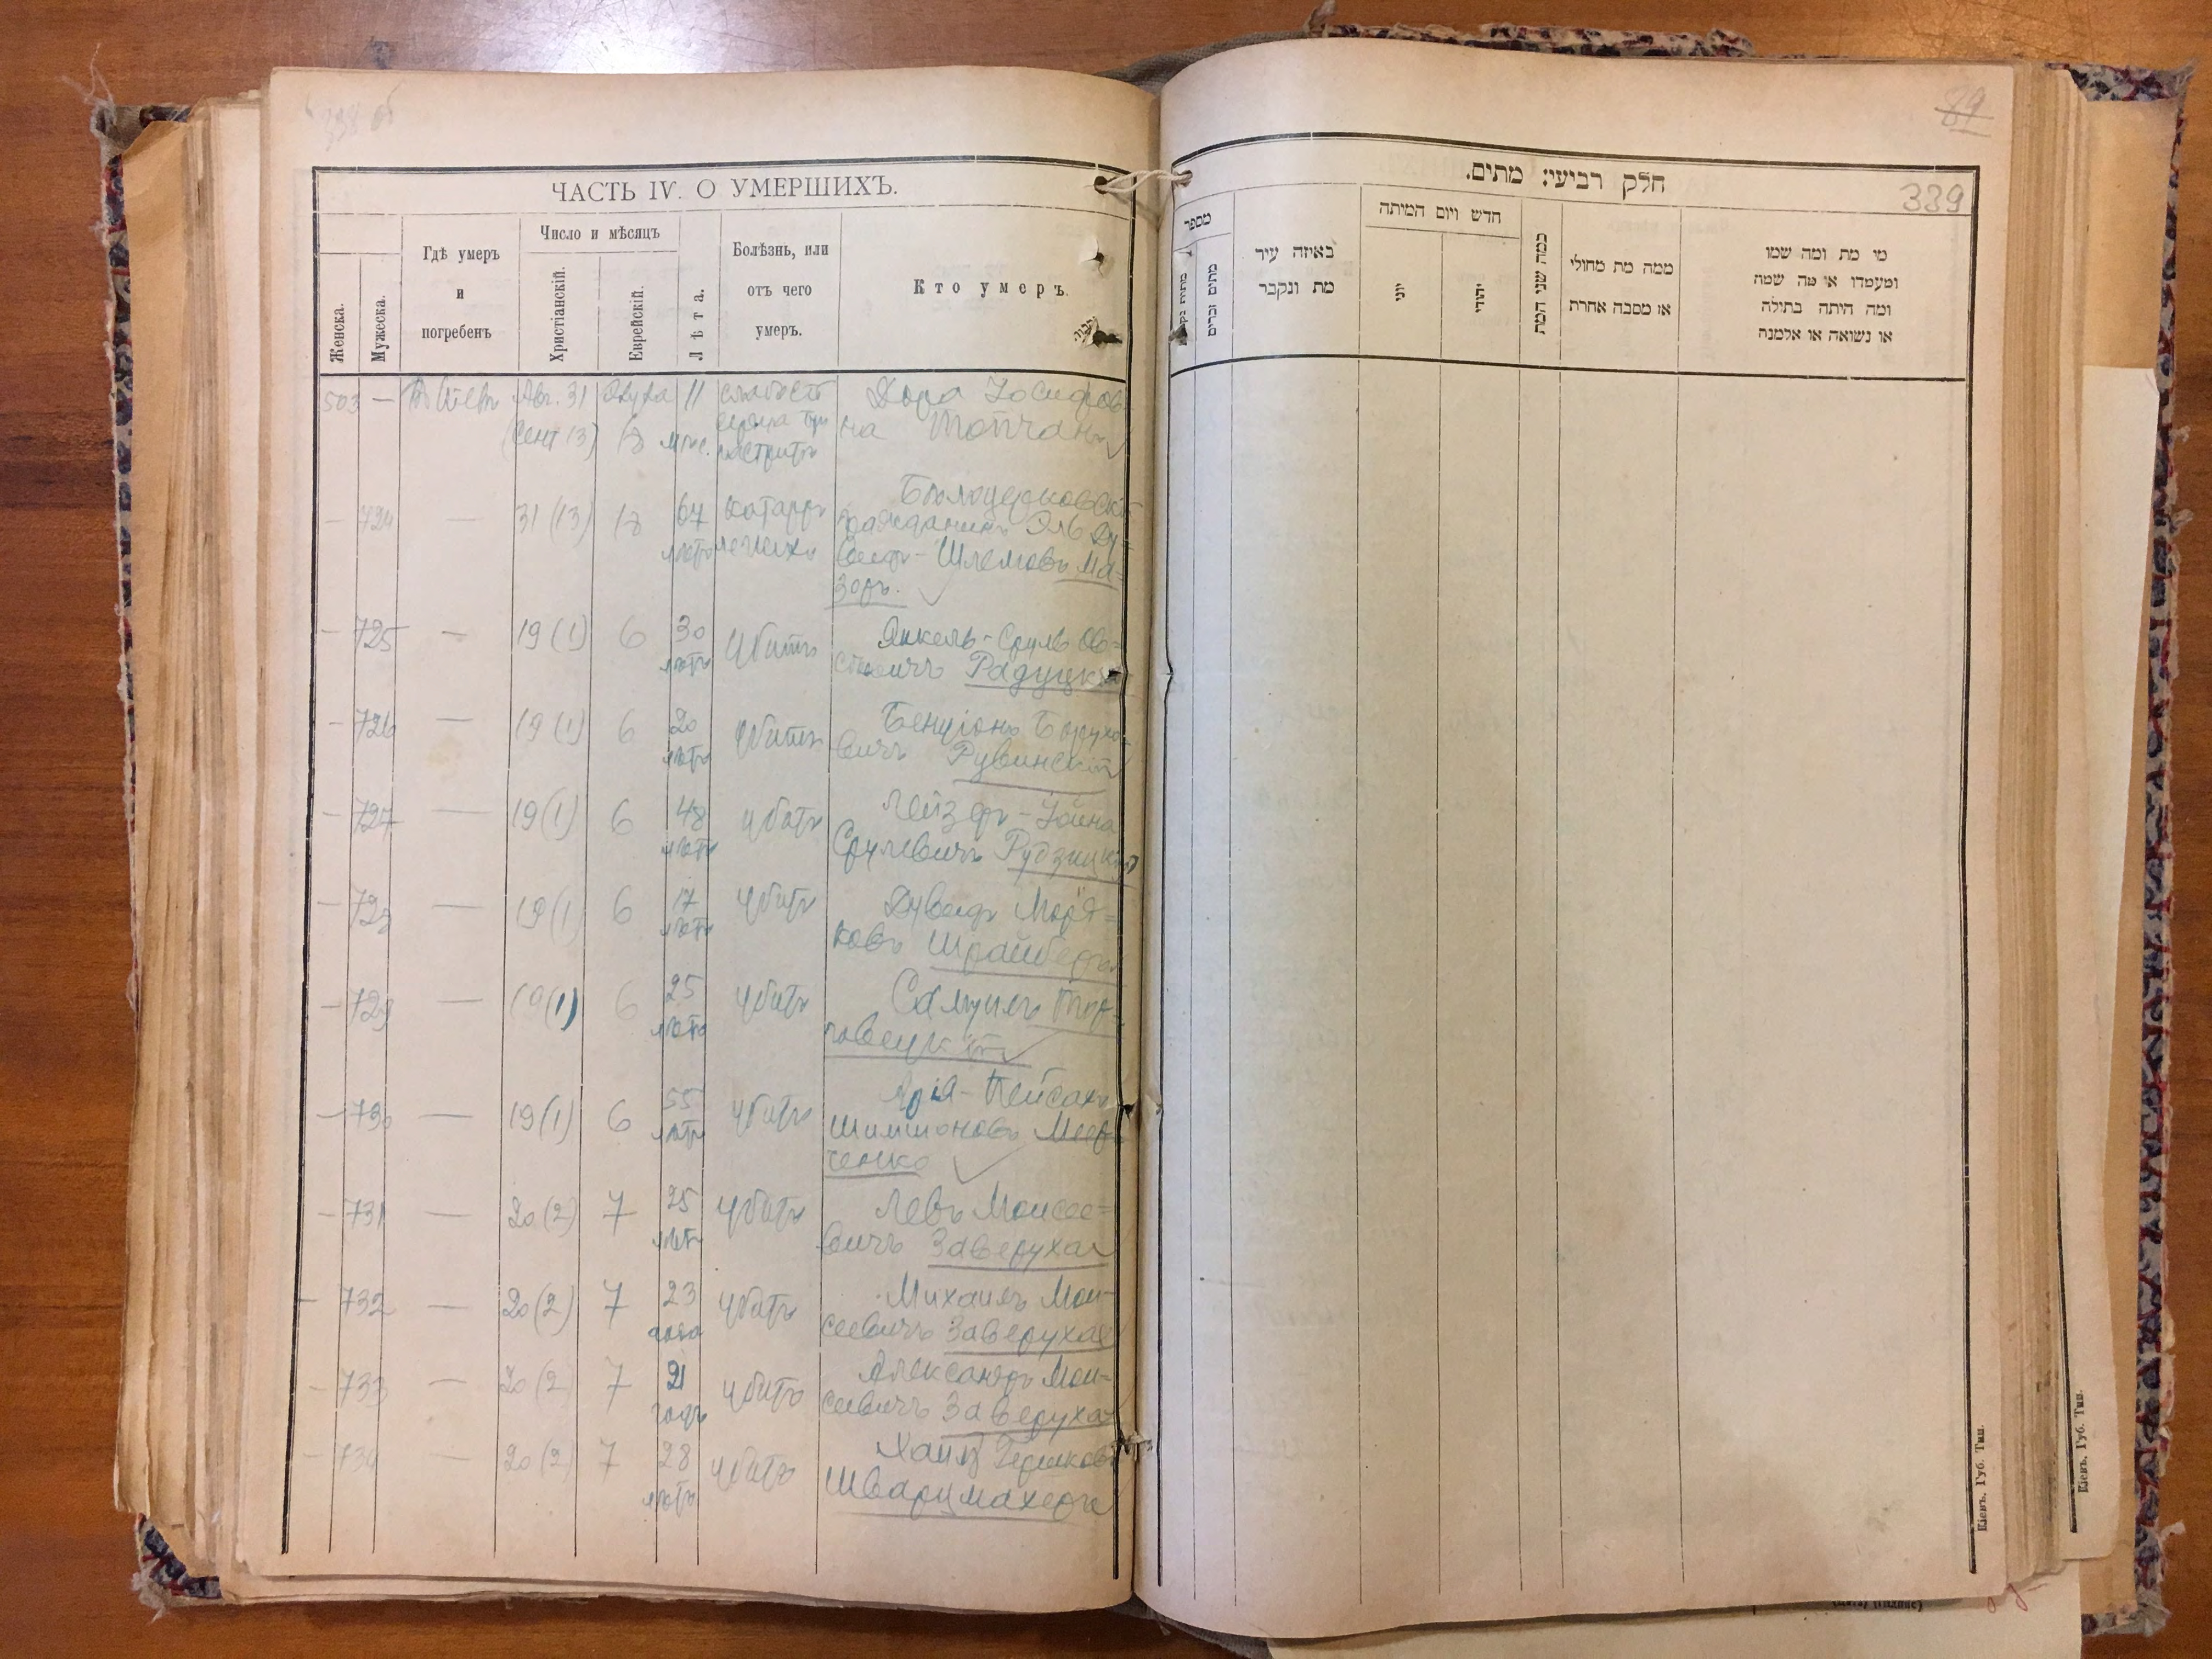 338 об
ЧАСТЬ IV. О УМЕРШИХЪ.
Женска.
Мужеска.
Гдѣ умеръ
и
погребенъ
Число и мѣсяцъ
Христіанскій.
Еврейскій.
Лѣта.
Болѣзнь, или
отъ чего
умеръ.
Кто умеръ.
503 — Авг. 31 11 слабость Дора Іосифов-
(Сент 13) 18 мѣс. сердца при на Топчанъ
— 724 — 31 (13) 18 67 катарръ Бѣлоцерковскій
лѣтъ легкихъ гражданинъ Эль Ду-
Шлемовъ Ма=
зоръ.
— 725 — 19 (1) 6 30 Убитъ Янкель-Сруль Ов-
лѣтъ Радуцкій
— 726 — 19 (1) 6 20 Убитъ Бенціонъ Борухо-
лѣтъ вичъ Рувинскій
— 727 — 19 (1) 6 48 убитъ Лейзеръ-Іойна
лѣтъ Срулевичъ Рудзицкій
— 728 — 19 (1) 6 17 убитъ
лѣтъ ковъ Шрайберъ
— 729 — 19 (1) 6 25 убитъ Самуилъ Тор-
лѣтъ говецкій
— 730 — 19 (1) 6 55 убитъ Арія-Пейсахъ
лѣтъ Шимшоновъ Меер-
ченко
— 731 — 20 (2) 7 25 убитъ Левъ Моисее=
лѣтъ вичъ Заверуха
— 732 — 20 (2) 7 23 убитъ Михаилъ Мои-
года сеевичъ Заверуха
— 733 — 20 (2) 7 21 убитъ Александръ Мои-
годъ сеевичъ Заверуха
— 734 — 20 (2) 7 28 убитъ Хаимъ Гершковъ
лѣтъ Шварцмахеръ
89
339
חלק רביעי: מתים.
מספר
מתים זכרים
באיזה עיר
מת ונקבר
חדש ויום המיתה
יוני
יהודי
כמה שני המת
ממה מת מחולי
או מסבה אחרת
מי מת ומה שמו
ומעמדו או מה שמה
ומה היתה בתילה
או נשואה או אלמנה
Кіевъ. Губ. Тип.
Кіевъ. Губ. Тип.